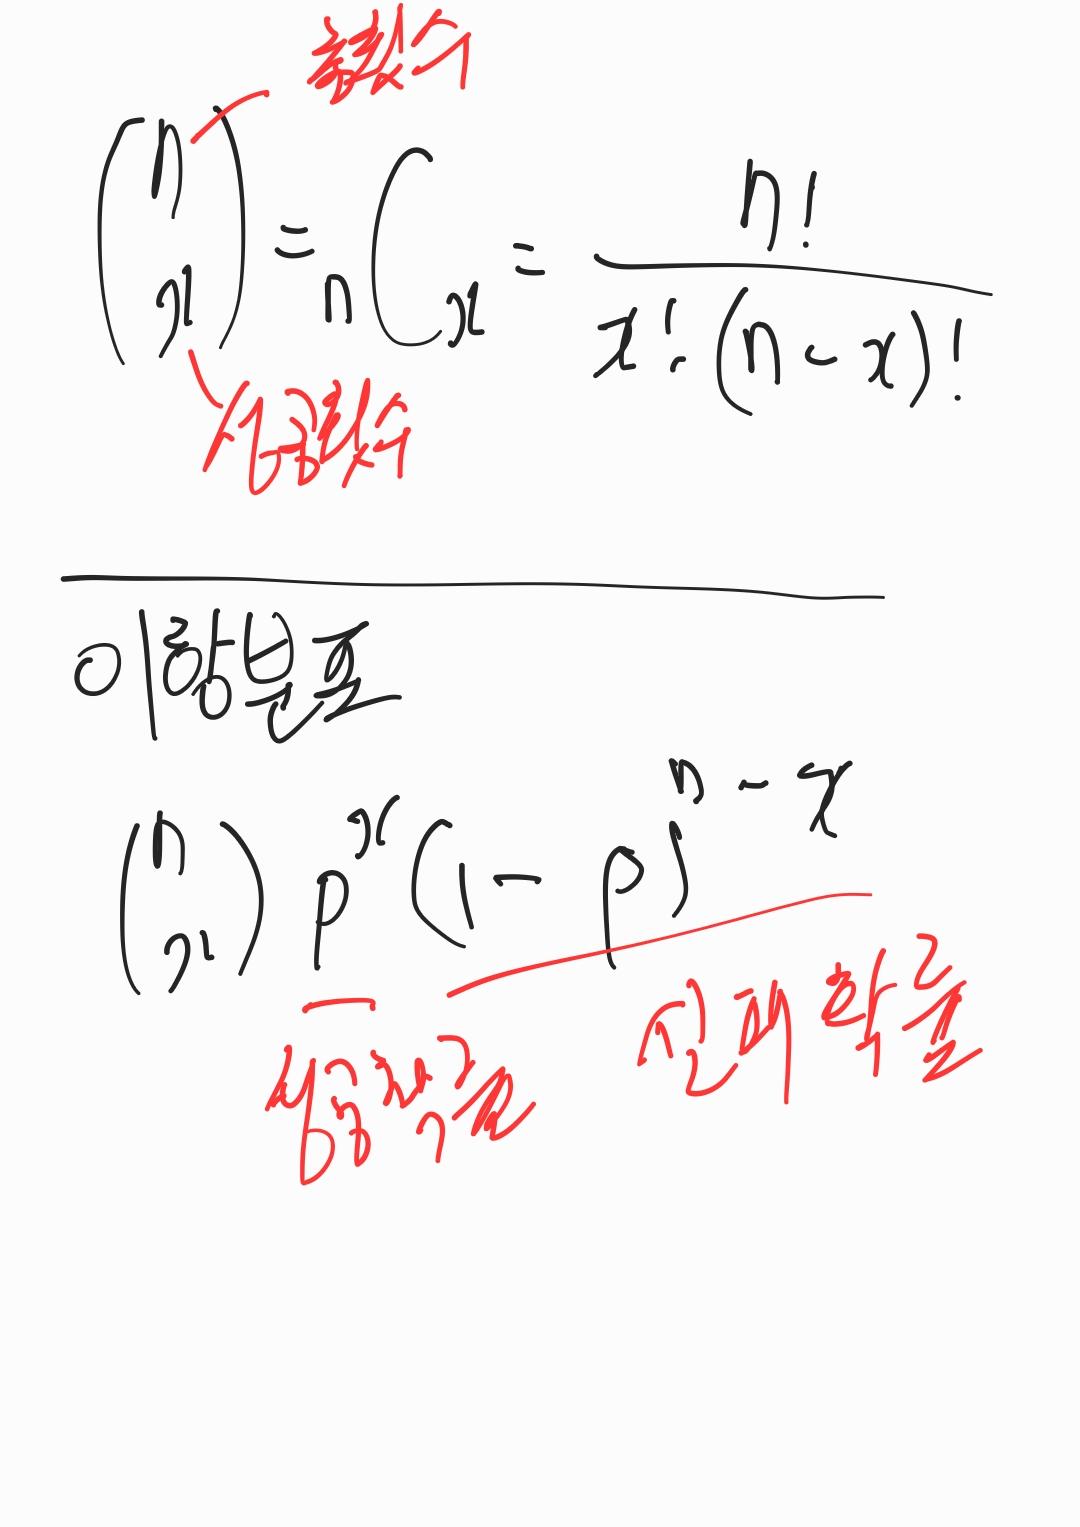 총횟수
(n x) = nCx = n! / x!(n-x)!
성공횟수
이항분포
(n x) p^x (1-p)^n-x
성공확률
실패확률